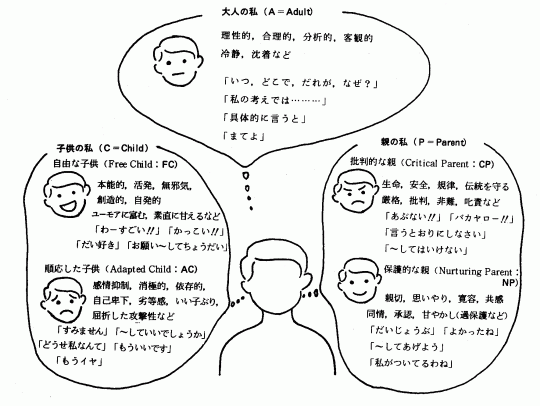 大人の私（A＝Adult）
理性的，合理的，分析的，客観的
冷静，沈着など
「いつ，どこで，だれが，なぜ？」
「私の考えでは………」
「具体的に言うと」
「まてよ」
子供の私（C＝Child）
自由な子供（Free Child：FC）
本能的，活発，無邪気，
創造的，自発的
ユーモアに富む，素直に甘えるなど
「わーすごい!!」「かっこい!!」
「だい好き」「お願い〜してちょうだい」
順応した子供（Adapted Child：AC）
感情抑制，消極的，依存的，
自己卑下，劣等感，いい子ぶり，
屈折した攻撃性など
「すみません」「〜していいでしょうか」
「どうせ私なんて」「もういいです」
「もうイヤ」
親の私（P＝Parent）
批判的な親（Critical Parent：CP）
生命，安全，規律，伝統を守る
厳格，批判，非難，叱責など
「あぶない!!」「バカヤロー!!」
「言うとおりにしなさい」
「〜してはいけない」
保護的な親（Nurturing Parent：
NP）
親切，思いやり，寛容，共感
同情，承認，甘やかし(過保護など)
「だいじょうぶ」「よかったね」
「〜してあげよう」
「私がついてるわね」